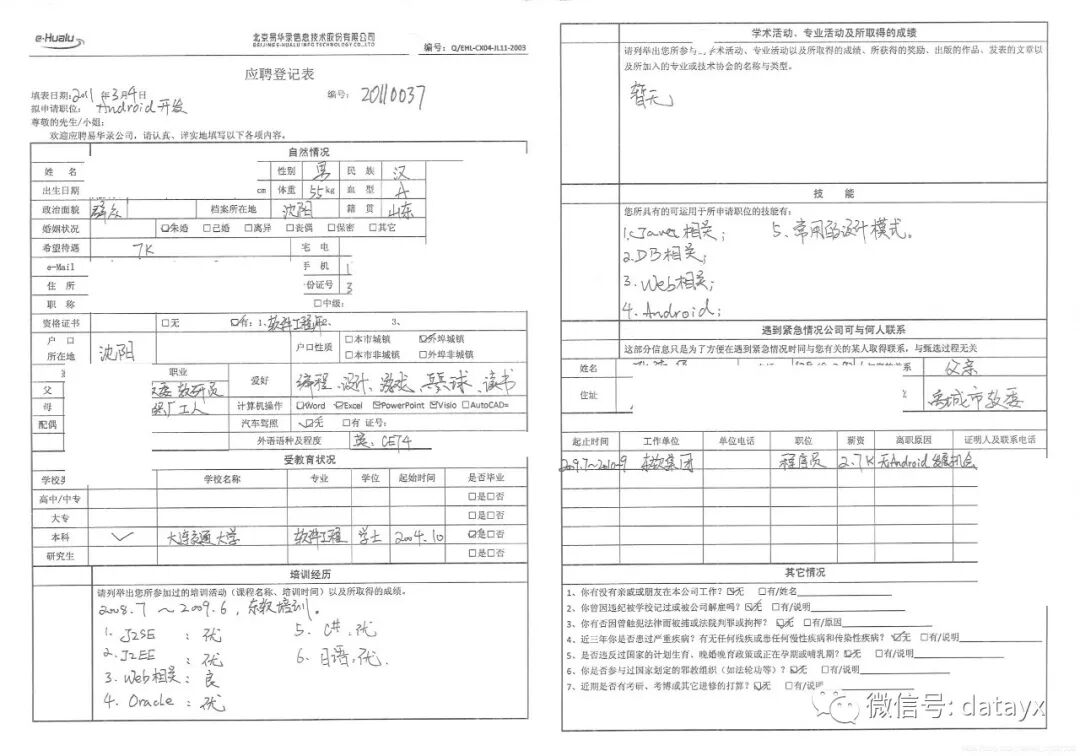 e-Hualu
北京易华录信息技术股份有限公司
BEIJING E-HUALU INFO TECHNOLOGY CO.,LTD
编号：Q/EHL-CX04-JL11-2003
应聘登记表
填表日期:2011年3月4日
编号: 20110037
拟申请职位: Android开发
尊敬的先生/小姐:
欢迎应聘易华录公司，请认真、详实地填写以下各项内容。
自然情况
姓 名 性别 男 民 族 汉
出生日期 cm 体重 55kg 血 型 A
政治面貌 群众 档案所在地 沈阳 籍 贯 山东
婚姻状况 ☑未婚 □已婚 □离异 □丧偶 □保密 □其它
希望待遇 7K 宅 电
e-Mail 手 机 1
住 所 份证号 3
职 称 □中级:
资格证书 □无 ☑有: 1、软件工程 2、 3、
户 口
所在地 沈阳 户口性质 □本市城镇 ☑外埠城镇
□本市非城镇 □外埠非城镇
职业 爱好 编程、设计、游戏、乒乓球、读书
父 教研员
母 厂工人 计算机操作 □Word ☑Excel ☑PowerPoint ☑Visio □AutoCAD=
配偶 汽车驾照 ☑无 □有 证号:
外语语种及程度 英、CET4
受教育状况
学校 学校名称 专业 学位 起始时间 是否毕业
高中/中专 □是□否
大专 □是□否
本科 ✓ 大连交通大学 软件工程 学士 2004.10 ☑是□否
研究生 □是□否
培训经历
请列举出您所参加过的培训活动（课程名称、培训时间）以及所取得的成绩。
2008.7 ～ 2009.6，东软培训。
1. J2SE : 优 5. C#、优
2. J2EE : 优 6. 日语、优.
3. Web相关: 良
4. Oracle : 优
学术活动、专业活动及所取得的成绩
请列举出您所参与 学术活动、专业活动以及所取得的成绩、所获得的奖励、出版的作品、发表的文章以
及所加入的专业或技术协会的名称与类型。
暂无
技 能
您所具有的可运用于所申请职位的技能有:
1. Java相关; 5、常用的设计模式。
2. DB相关;
3. Web相关;
4. Android;
遇到紧急情况公司可与何人联系
这部分信息只是为了方便在遇到紧急情况时间与您有关的某人取得联系，与甄选过程无关
姓名 系 父亲
住址 禹城市教委
起止时间 工作单位 单位电话 职位 薪资 离职原因 证明人及联系电话
2009.7～2010.9 东软集团 程序员 2.7K 无Android发展机会
其它情况
1、你有没有亲戚或朋友在本公司工作？☑无 □有/姓名
2、你曾因违纪被学校记过或被公司解雇吗？☑无 □有/说明
3、你有否因曾触犯法律而被捕或法院判罪或拘押？ ☑无 □有/原因
4、近三年你是否患过严重疾病？有无任何残疾或患任何慢性疾病和传染性疾病？ ☑无 □有/说明
5、是否违反过国家的计划生育、晚婚晚育政策或正在孕期或哺乳期？ ☑无 □有/说明
6、你是否参与过国家划定的邪教组织（如法轮功等）？ ☑无 □有/说明
7、近期是否有考研、考博或其它进修的打算？ ☑无 □有/说
微信号: datayx